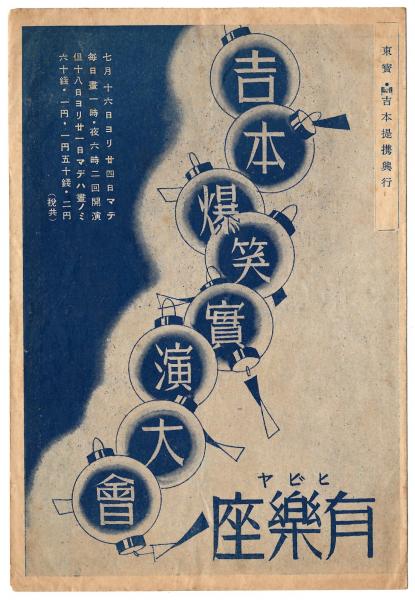 東寶・吉本提携興行
吉本爆笑實演大會
七月十六日ヨリ廿四日マデ
每日晝一時・夜六時二回開演
但十八日ヨリ廿一日マデハ晝ノミ
六十錢・一円・一円五十錢・二円
(稅共)
ヒビヤ
有樂座